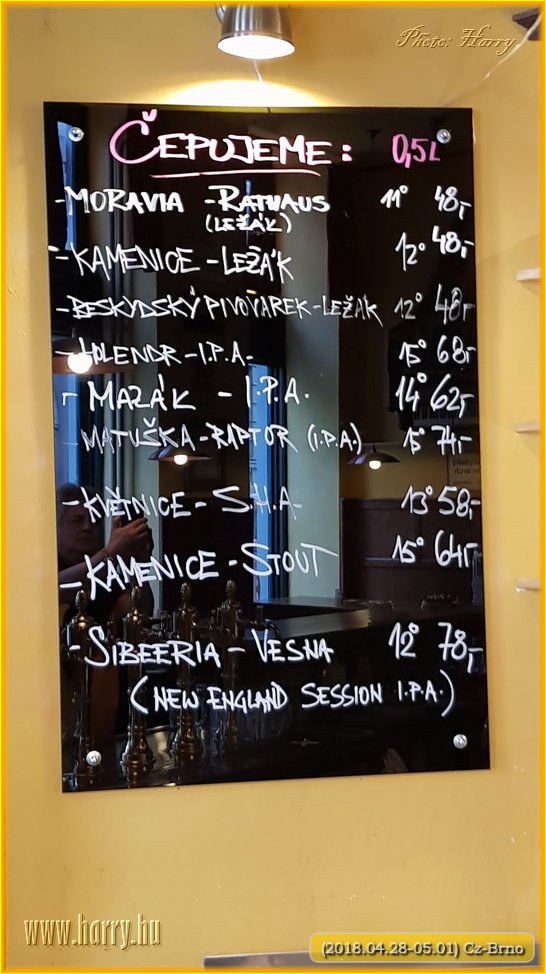 Photo: Harry
ČEPUJEME: 0,5L
-MORAVIA -RATHAUS 11° 48,-
(LEŽÁK)
-KAMENICE -LEŽÁK 12° 48,-
-BESKYDSKÝ PIVOVÁREK-LEŽÁK 12° 48,-
-HOLENDR-I.P.A- 15° 68,-
- MAZÁK - I.P.A. 14° 62,-
MATUŠKA-RAPTOR (I.P.A) 15° 74,-
-KVĚTNICE- S.H.A- 13° 58,-
-KAMENICE -STOUT 15° 64,-
-SIBEERIA- VESNA 12° 78,-
(NEW ENGLAND SESSION I.P.A.)
www.harry.hu
(2018.04.28-05.01) Cz-Brno